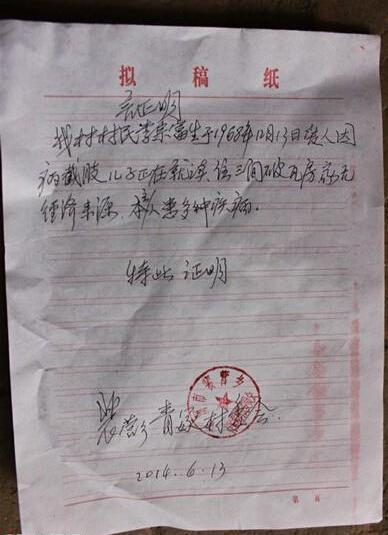 拟 稿 纸
证明
我村村民李荣富生于1968年12月13日爱人因
病截肢儿子正在就读 住三间破瓦房 家无
经济来源. 本人患多种疾病.
特此 证明
青 村委会.
2014.6.13
第 页